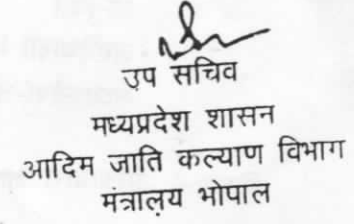 उप सचिव
मध्यप्रदेश शासन
आदिम जाति कल्याण विभाग
मंत्रालय भोपाल